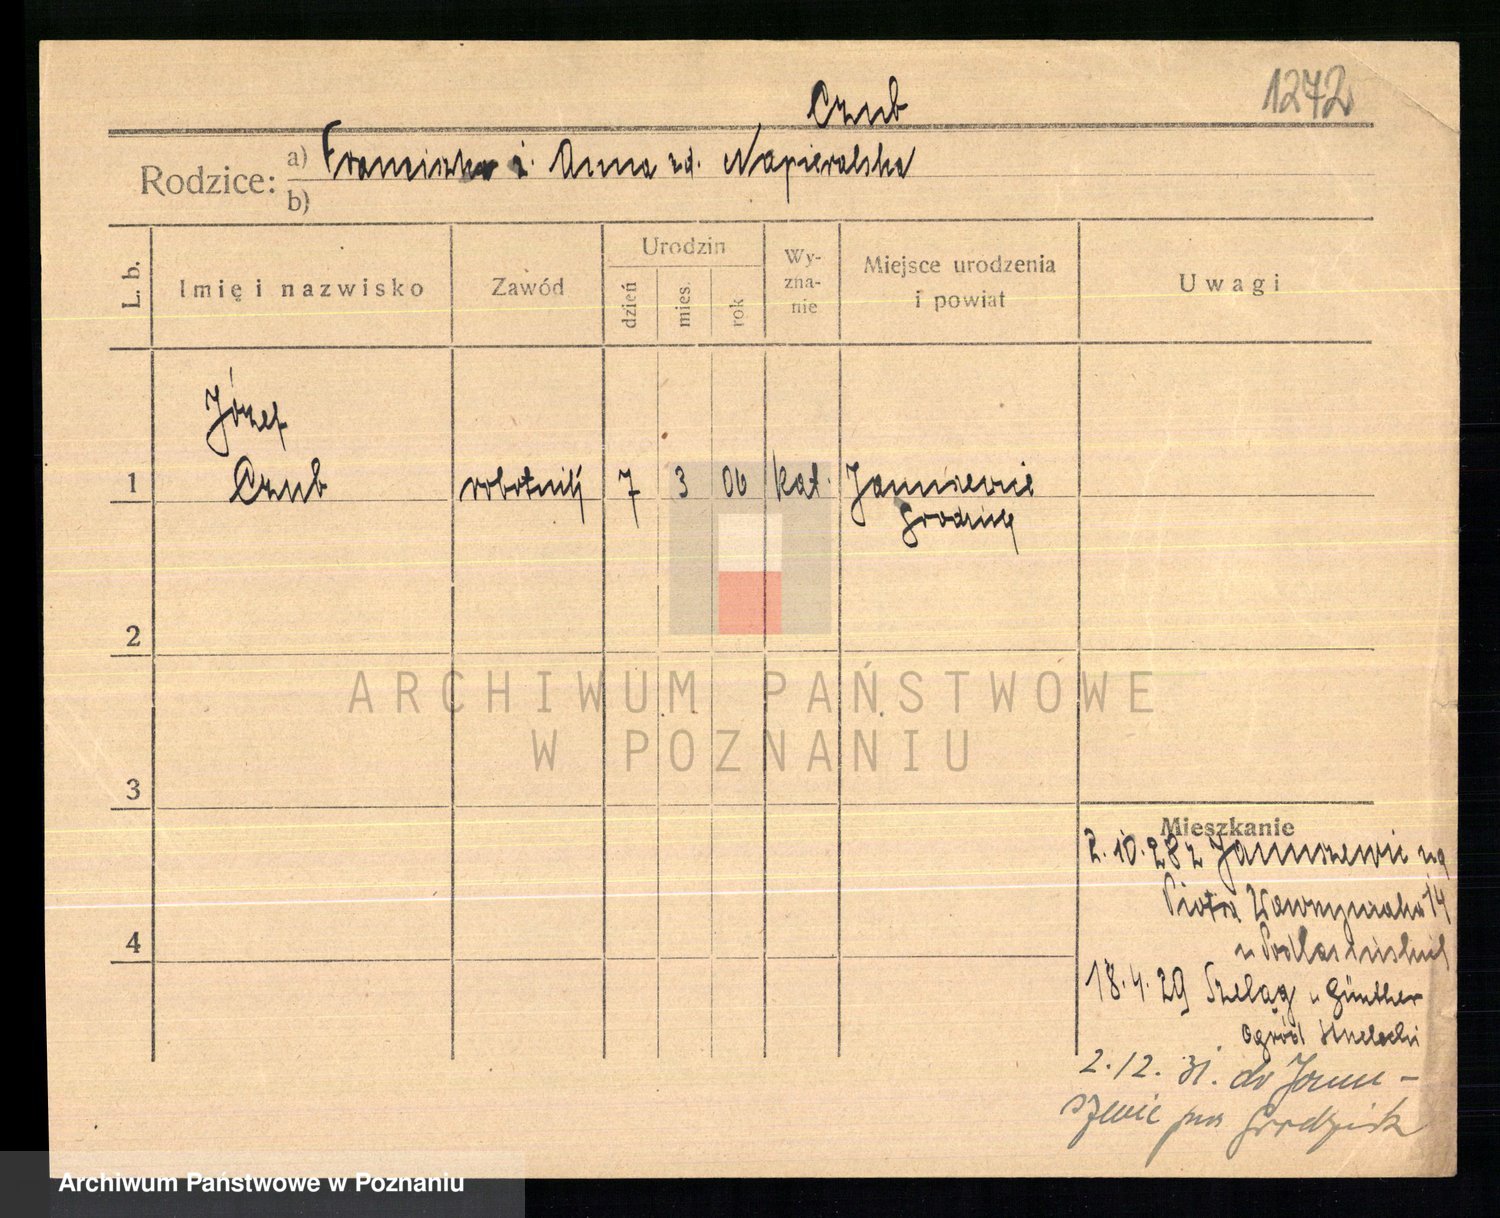 1272
Czub
Rodzice: a) Franciszka i Anna zd. Napieralska
b)
L. b.
Imię i nazwisko
Zawód
Urodzin
dzień
mies.
rok
Wy-
zna-
nie
Miejsce urodzenia
i powiat
Uwagi
Józef
1 Czub robotnik 7 3 06 kat. Januszewic
Grodzisk
2
3
4
Mieszkanie
2.10.28 z Januszewic na
Piotra Wawrzyniaka 14
u
18.4.29 Szeląg u Günther
Ogród
2.12.31. do Janu-
szewic pow Grodzisk
ARCHIWUM PAŃSTWOWE
W POZNANIU
Archiwum Państwowe w Poznaniu